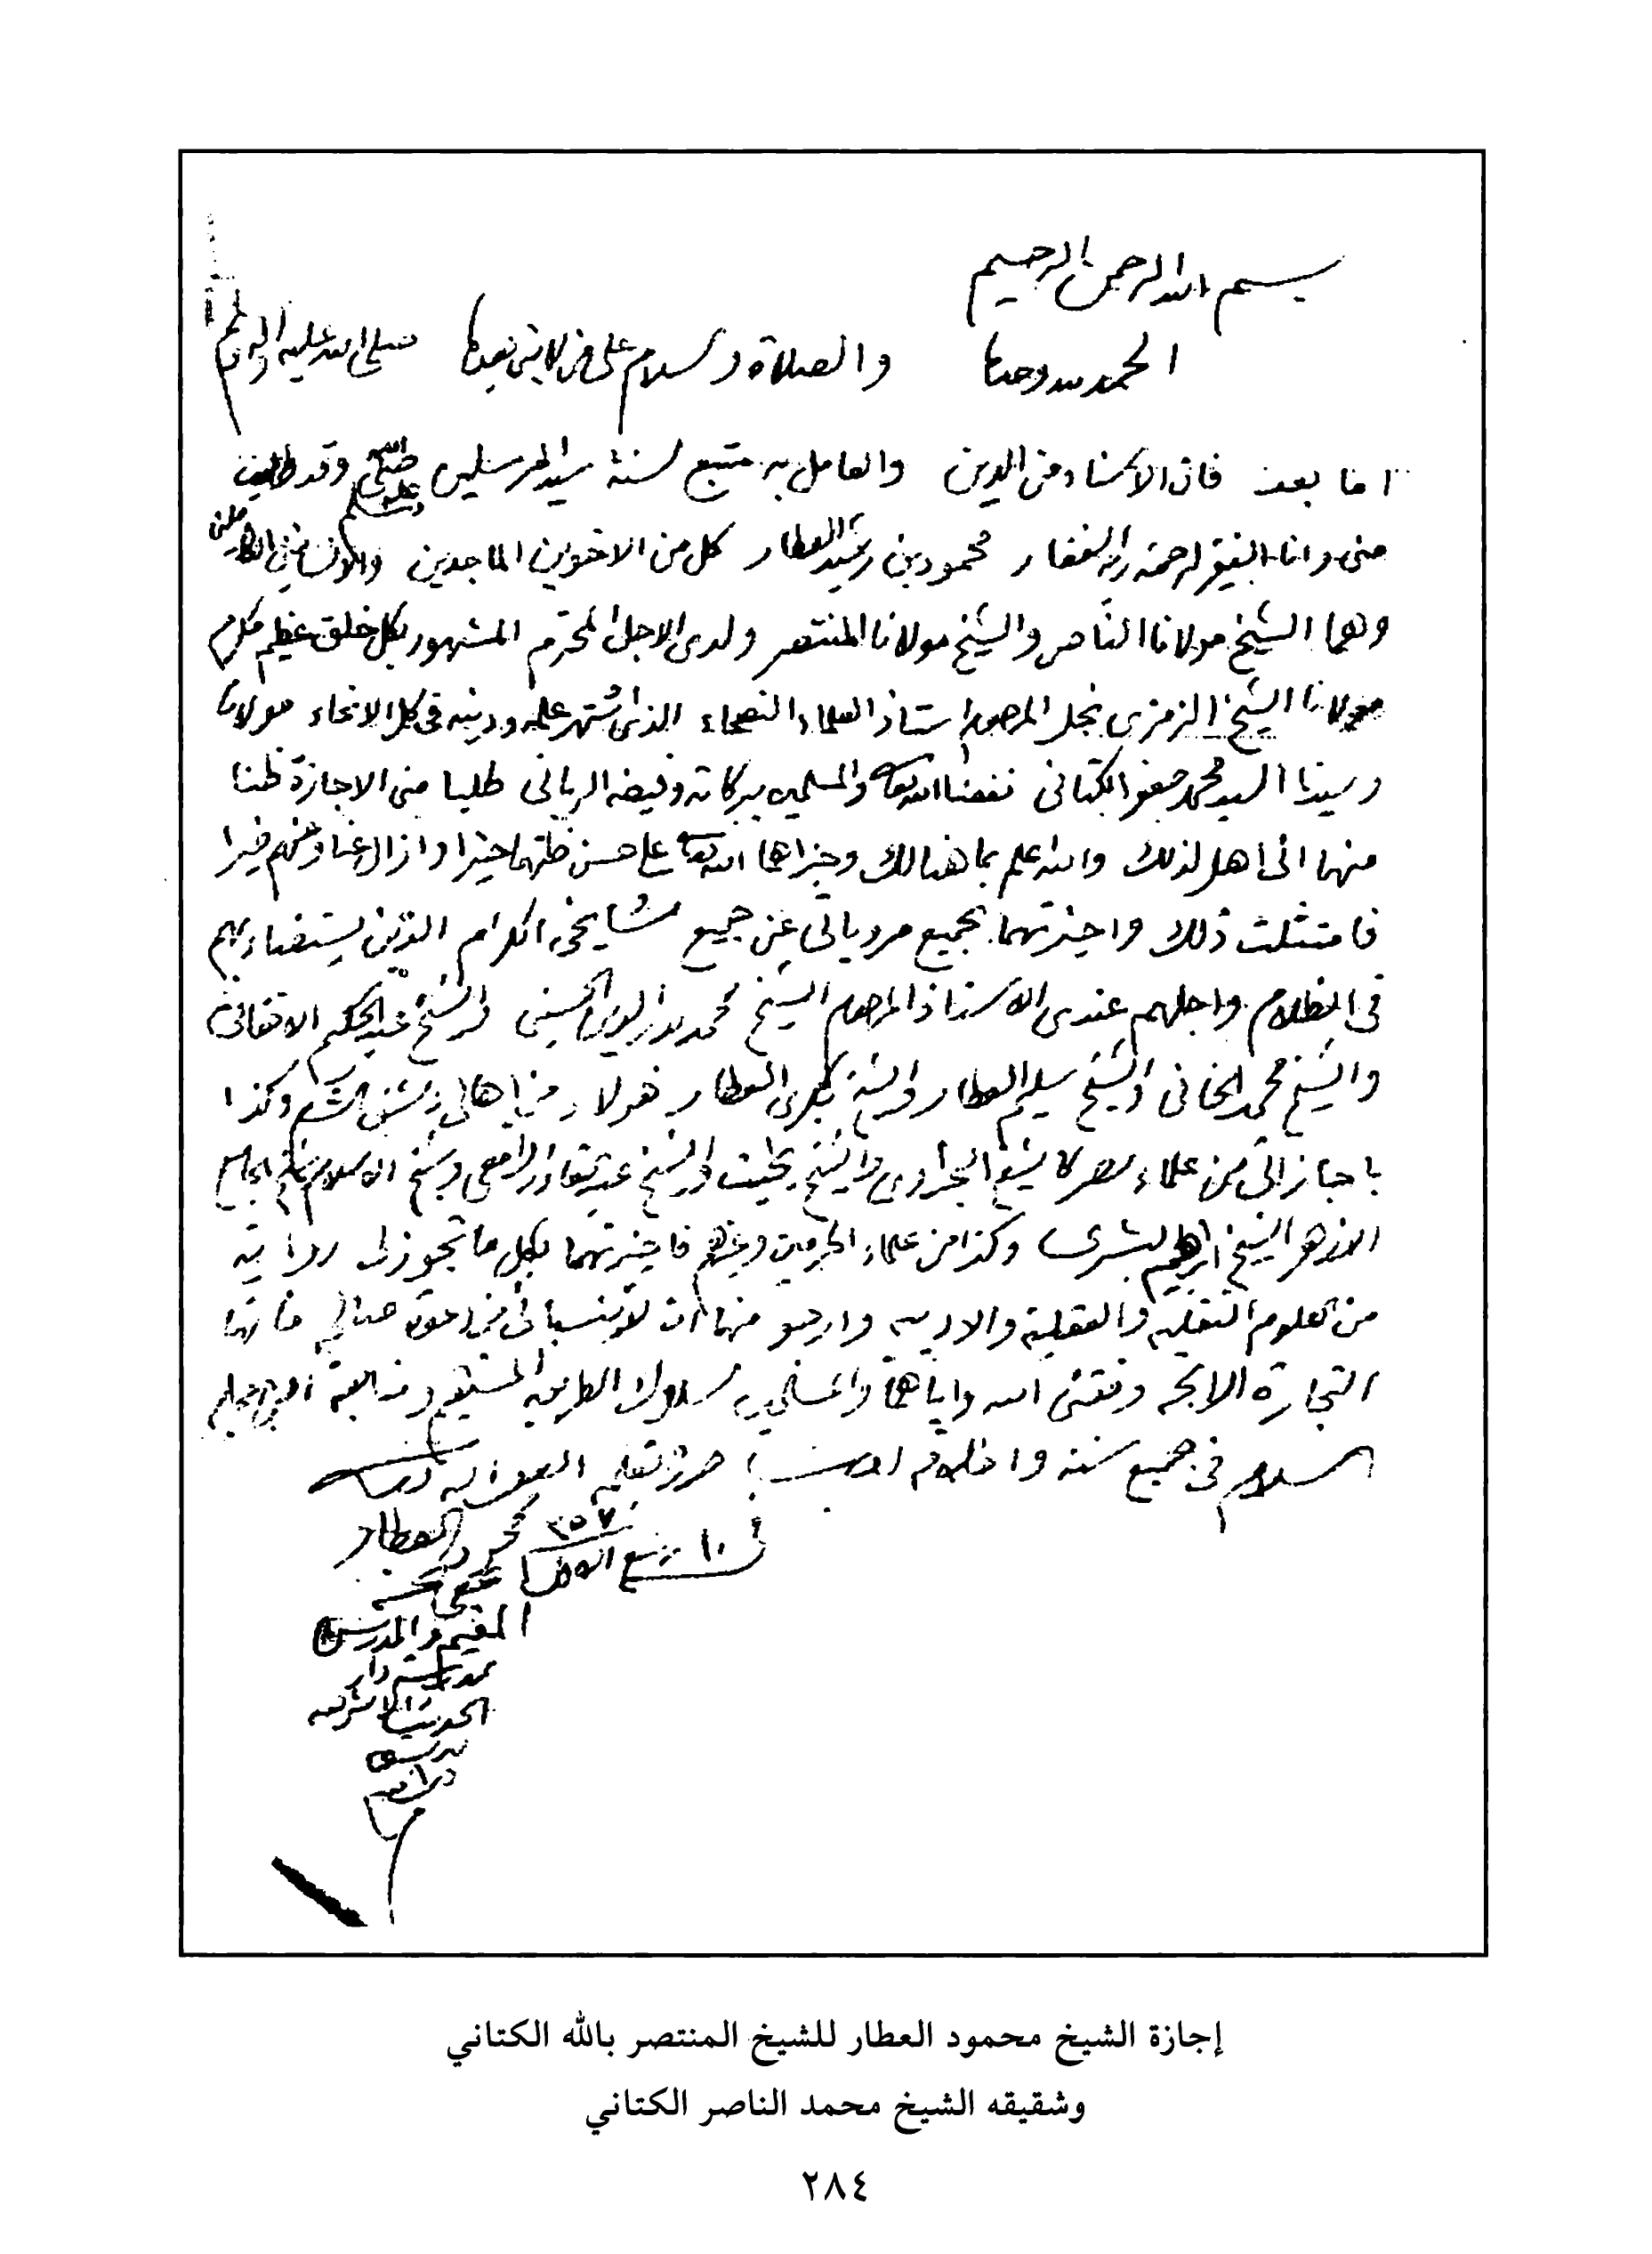 بسم الله الرحمن الرحيم
الحمد لله وحده والصلاة والسلام على من لا نبي بعده صلى الله عليه وآله وسلم
اما بعد فان الاسناد من الدين والعامل به متبع لسنة سيد المرسلين صلى الله عليه وسلم وقد طلب
مني وانا الفقير لرحمة ربه الغفار محمود بن رشيد العطار كل من الاخوين الماجدين
وهما الشيخ مولانا الناصر والشيخ مولانا المنتصر ولدى الاجل المحترم المشهور بكل خلق عظيم مكرم
مولانا الشيخ الزمزمي نجل المرحوم استاذ العلماء النصحاء الذي اشتهر علمه ودينه في كل الانحاء مولانا
وسيدنا السيد محمد جعفر الكتاني نفعنا الله تعالى والمسلمين ببركاته وفيضه الرباني طلبا مني الاجازة ظنا
منهما اني اهل لذلك والله اعلم بما هنالك وجزاهما الله تعالى على حسن ظنهما خيرا وازال عنا وعنهم ضيرا
فامتثلت ذلك واجزتهما بجميع مروياتي عن جميع مشايخي الكرام الذين يستضاء بهم
في الظلام واجلهم عندي الاستاذ المرحوم الشيخ محمد بدر الدين الحسيني والشيخ عبد الحكيم الافغاني
والشيخ محمد الخاني والشيخ سليم العطار والشيخ بكري العطار هولاء من اهالي دمشق الشام وكذا
باجازاتي من علماء مصر كالشيخ والشيخ بخيت والشيخ عبد القادر الرافعي وشيخ الاسلام الجامع
الازهر الشيخ البشري وكذا من علماء الحرمين وغيرهم فاجزتهما بكل ما تجوز لي روايته
من العلوم النقلية والعقلية والادبية وارجو منهما ان لا ينسياني من دعوة صالحة فانها
التجارة الرابحة وفقني الله واياهما والمسلمين لسلوك الطريق المستقيم ومتابعة
السلام في جميع سننه واخلاقه حرره بقلمه الفقير اليه تعالى
في ١٠ ربيع ٣٥٧ محمود العطار
عفي عنه
المقيم والمدرس
بمدرسة دار
الحديث الاشرفية
بدمشق
إجازة الشيخ محمود العطار للشيخ المنتصر بالله الكتاني
وشقيقه الشيخ محمد الناصر الكتاني
٢٨٤